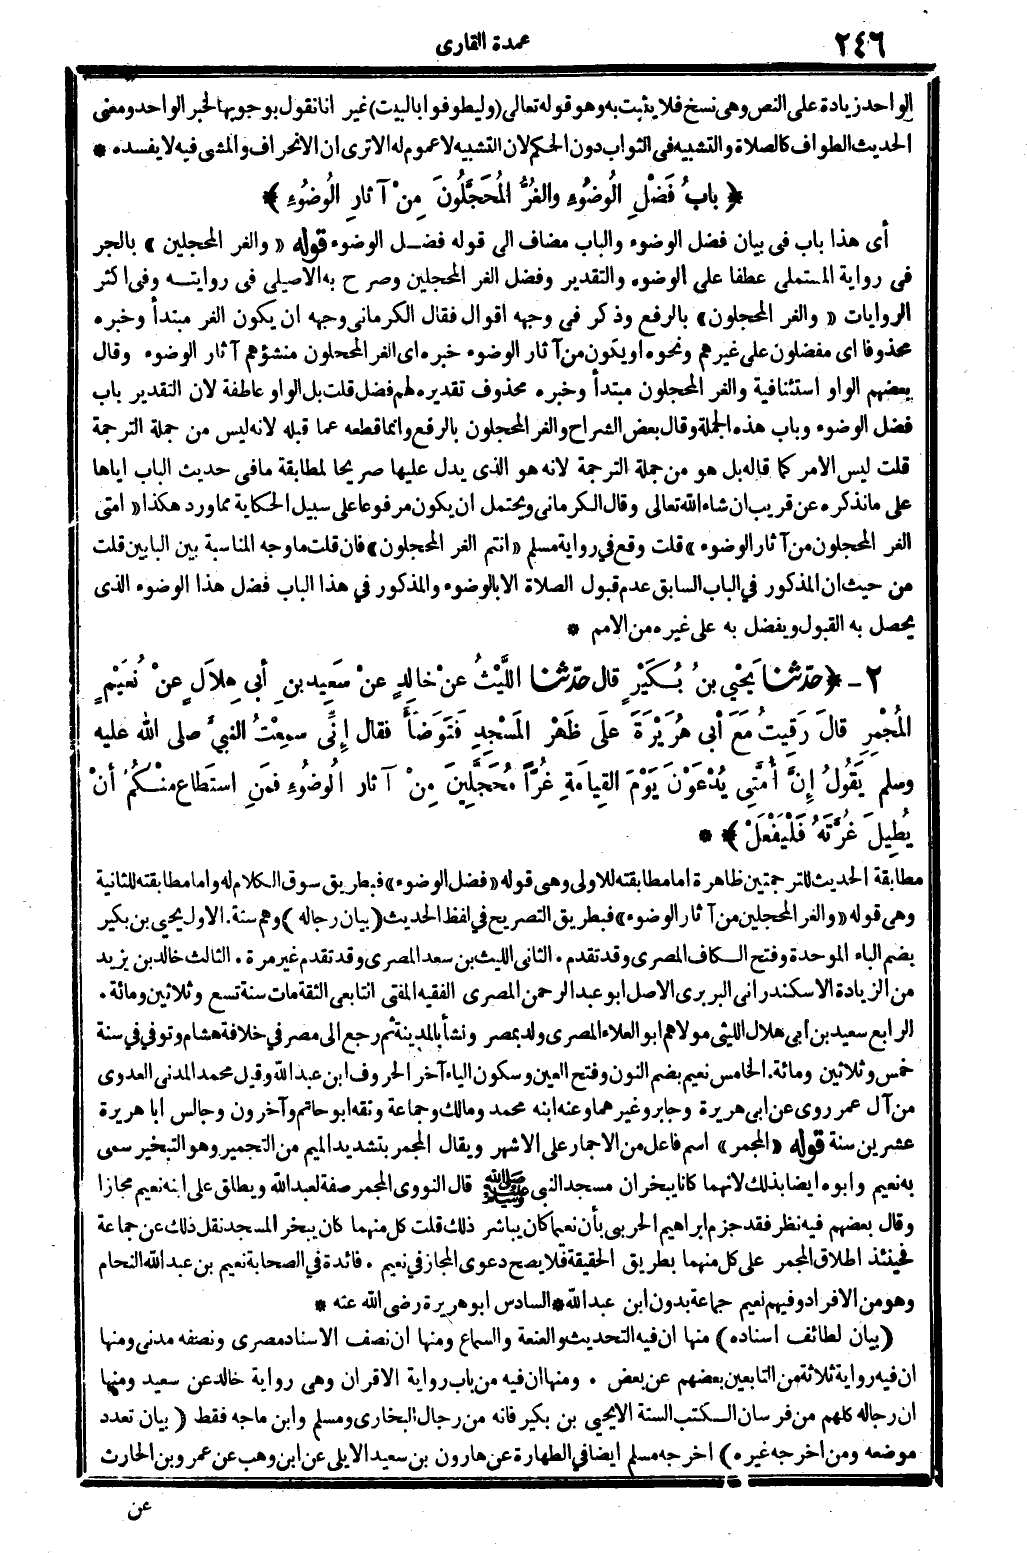 ٢٤٦
عمدة القارى
الواحد زيادة على النص وهى نسخ فلا يثبت به وهو قوله تعالى (وليطوفوا بالبيت) غير انا نقول بوجوبها لخبر الواحد ومعنى
الحديث الطواف كالصلاة والتشبيه فى الثواب دون الحكم لان التشبيه لا عموم له الا ترى ان الانحراف والمشى فيه لا يفسده *
﴿ بابُ فَضْلِ الُوضُوءِ والغُرُّ المُحَجَّلُونَ مِنْ آثارِ الُوضُوءِ ﴾
أى هذا باب فى بيان فضل الوضوء والباب مضاف الى قوله فضـل الوضوء قوله « والغر المحجلين » بالجر
فى رواية المستملى عطفا على الوضوء والتقدير وفضل الغر المحجلين وصرح به الاصيلى فى روايتـه وفى اكثر
الروايات « والغر المحجلون » بالرفع وذكر فى وجهه اقوال فقال الكرمانى وجهه ان يكون الغر مبتدأ وخبره
محذوفا اى مفضلون على غيرهم ونحوه او يكون من آثار الوضوء خبره اى الغر المحجلون منشؤهم آثار الوضوء وقال
بعضهم الواو استئنافية والغر المحجلون مبتدأ وخبره محذوف تقديره لهم فضل قلت بل الواو عاطفة لان التقدير باب
فضل الوضوء وباب هذه الجملة وقال بعض الشراح والغر المحجلون بالرفع وانما قطعه عما قبله لانه ليس من جملة الترجمة
قلت ليس الامر كما قاله بل هو من جملة الترجمة لانه هو الذى يدل عليها صريحا لمطابقة مافى حديث الباب اياها
على مانذكره عن قريب ان شاء الله تعالى وقال الكرمانى ويحتمل ان يكون مرفوعا على سبيل الحكاية مما ورد هكذا « امتى
الغر المحجلون من آثار الوضوء » قلت وقع في رواية مسلم « انتم الغر المحجلون» فان قلت ما وجه المناسبة بين البابين قلت
من حيث ان المذكور في الباب السابق عدم قبول الصلاة الا بالوضوء والمذكور في هذا الباب فضل هذا الوضوء الذى
يحصل به القبول ويفضل به على غيره من الامم *
٢ - ﴿ حدّثنا يَحْيي بنُ بُكَيْرٍ قال حدّثنا اللَّيْثُ عنْ خالِدٍ عنْ سَعِيدِ بنِ أبى هِلاَلٍ عنْ نُعَيْمٍ
المُجْمِرِ قالَ رَقِيتُ مَعَ أبى هُرَيْرَةَ علَى ظَهْرِ المَسْجِدِ فَتَوَضَّأَ فقال إنِّى سمِعْتُ النبيَّ صلى الله عليه
وسلم يَقُولُ إنَّ أُمَّتِى يُدْعَوْنَ يَوْمَ القِيامَةِ غُرًّا مُحَجَّلِينَ مِنْ آثارِ الُوضُوءِ فمَنِ اسْتطاعَ منْـكُمْ أنْ
يُطِيلَ غُرَّتَهُ فَلْيَفْعَلْ ﴾ *
مطابقة الحديث للترجمتين ظاهرة اما مطابقته للاولى وهى قوله «فضل الوضوء» فبطريق سوق الكلام له واما مطابقته للثانية
وهى قوله «والغر المحجلين من آثار الوضوء» فبطريق التصريح في لفظ الحديث (بيان رجاله) وهم ستة. الاول يحيى بن بكير
بضم الباء الموحدة وفتح الـكاف المصرى وقد تقدم . الثانى الليث بن سعد المصرى وقد تقدم غير مرة . الثالث خالد بن يزيد
من الزيادة الاسكندرانى البربرى الاصل ابو عبد الرحمن المصرى الفقيه المفتى التابعى الثقة مات سنة تسع وثلاثين ومائة .
الرابع سعيد بن أبى هلال الليثى مولاهم ابو العلاء المصرى ولد بمصر ونشأ بالمدينة ثم رجع الى مصر في خلافة هشام وتوفي في سنة
خمس وثلاثين ومائة. الخامس نعيم بضم النون وفتح العين وسكون الياء آخر الحروف ابن عبد الله وقيل محمد المدنى العدوى
من آل عمر روى عن ابى هريرة وجابر وغيرهما وعنه ابنه محمد ومالك وجماعة وثقه ابو حاتم وآخرون وجالس ابا هريرة
عشرين سنة قوله «المجمر» اسم فاعل من الاجمار على الاشهر ويقال المجمر بتشديد الميم من التجمير وهو التبخير سمى
به نعيم وابوه ايضا بذلك لانهما كانا يبخران مسجد النبى ﷺ قال النووى المجمر صفة لعبد الله ويطلق على ابنه نعيم مجازا
وقال بعضهم فيه نظر فقد جزم ابراهيم الحربى بأن نعيما كان يباشر ذلك قلت كل منهما كان يبخر المسجد نقل ذلك عن جماعة
فحينئذ اطلاق المجمر على كل منهما بطريق الحقيقة فلا يصح دعوى المجاز في نعيم . فائدة في الصحابة نعيم بن عبد الله النحام
وهو من الافراد وفيهم نعيم جماعة بدون ابن عبد الله* السادس ابو هريرة رضى الله عنه *
(بيان لطائف اسناده) منها ان فيه التحديث والعنعنة والسماع ومنها ان نصف الاسناد مصرى ونصفه مدنى ومنها
ان فيه رواية ثلاثة من التابعين بعضهم عن بعض . ومنها ان فيه من باب رواية الاقران وهى رواية خالد عن سعيد ومنها
ان رجاله كلهم من فرسان الـكتب الستة الا يحيى بن بكير فانه من رجال البخارى ومسلم وابن ماجه فقط ( بيان تعدد
موضعه ومن اخرجه غيره ) اخرجه مسلم ايضا في الطهارة عن هارون بن سعيد الايلى عن ابن وهب عن عمرو بن الحارث
عن